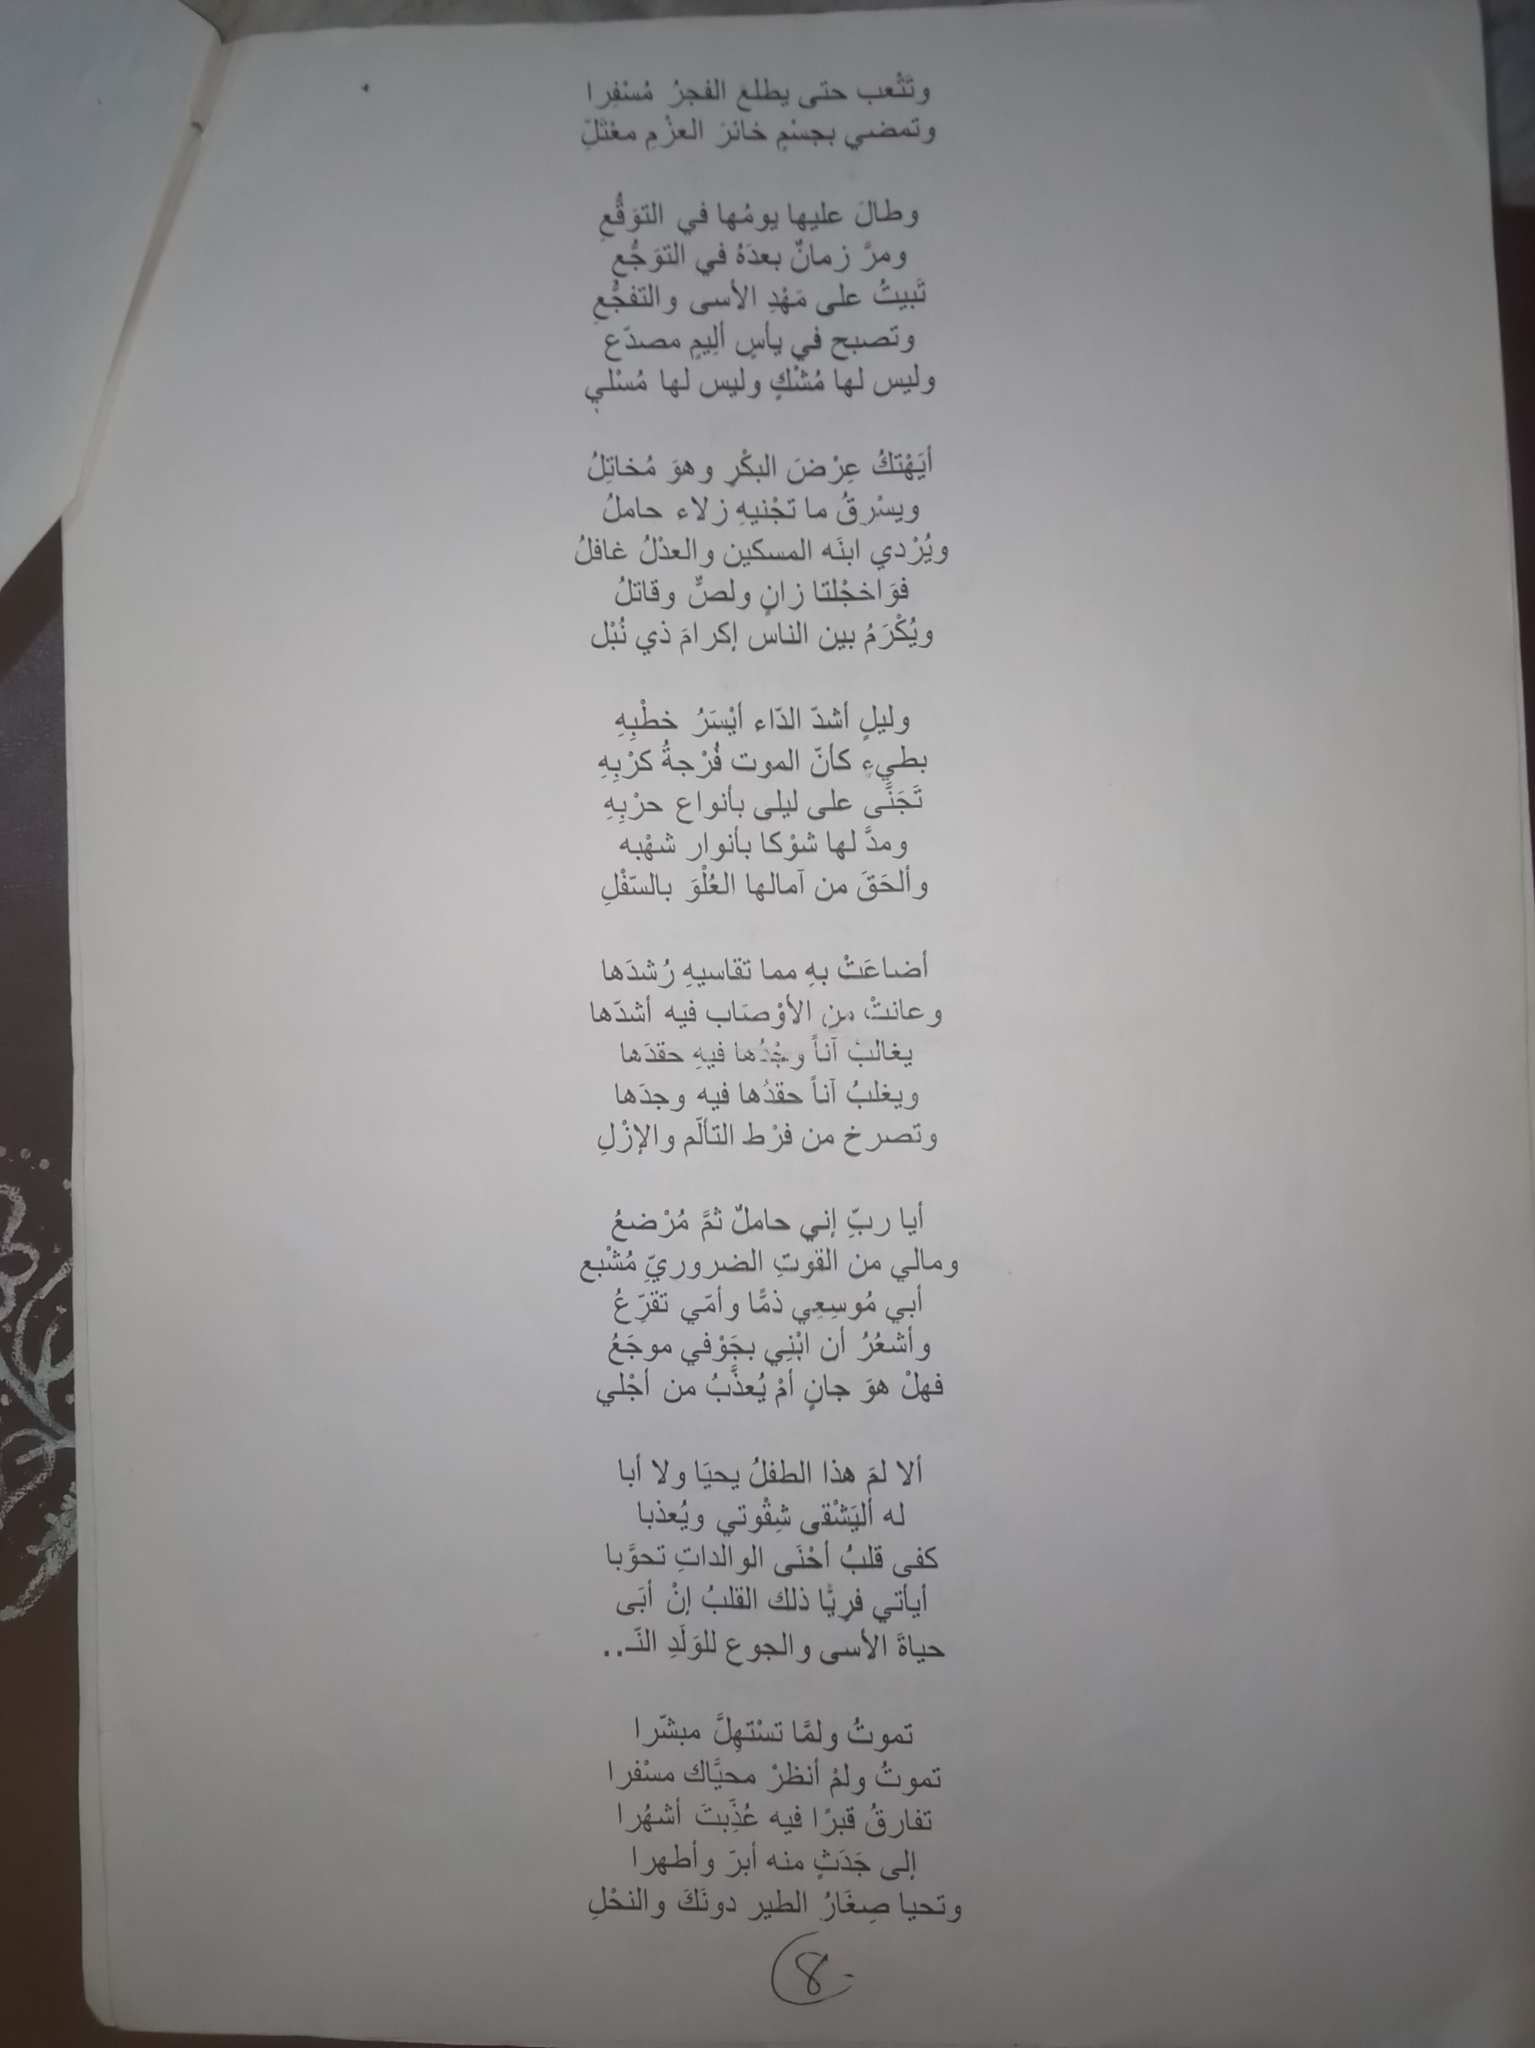 وتَتْعب حتى يطلعَ الفجرُ مُسْفِرا
وتمضي بجسْمٍ خائرَ العزْمِ معْتَلِّ
وطالَ عليها يومُها في التوَقُّعِ
ومرَّ زمانٌ بعدَهُ في التوَجُّعِ
تَبيتُ على مَهْدِ الأسى والتفجُّعِ
وتصبح في يأسٍ ألِيمٍ مصدّع
وليس لها مُشْكٍ وليس لها مُسْلي
أيَهْتكُ عِرْضَ البكْرِ وهوَ مُخاتِلُ
ويسْرِقُ ما تجْنيهِ زلاء حاملُ
ويُرْدي ابنَه المسكين والعدْلُ غافلُ
فوَاخجْلتا زانٍ ولصٌّ وقاتلُ
ويُكْرَمُ بين الناس إكرامَ ذي نُبْل
وليلٍ أشدّ الدّاء أيْسَرُ خطْبِهِ
بطيءٍ كأنّ الموت فُرْجةُ كرْبِهِ
تَجَنَّى على ليلى بأنواع حرْبِهِ
ومدَّ لها شوْكا بأنوار شهْبه
وألحَقَ من آمالها العُلْوَ بالسّفْلِ
أضاعَتْ بهِ مما تقاسيهِ رُشدَها
وعانتْ من الأوْصَاب فيه أشدّها
يغالبُ آناً وجْدُها فيهِ حقدَها
ويغلبُ آناً حقدُها فيه وجدَها
وتصرخ من فرْط التألّم والإزْلِ
أيا ربِّ إني حاملٌ ثمَّ مُرْضعُ
ومالي من القوتِ الضروريِّ مُشْبع
أبي مُوسِعِي ذمًّا وأمّي تقرِّعُ
وأشعُرُ أن ابْنِي بجَوْفي موجَعُ
فهلْ هوَ جانٍ أمْ يُعذَّبُ من أجْلي
ألا لمَ هذا الطفلُ يحيَا ولا أبا
له أليَشْقى شِقْوتي ويُعذبا
كفى قلبُ أحْنَى الوالداتِ تحوَّبا
أيأتي فرِيًّا ذلك القلبُ إنْ أبَى
حياةَ الأسى والجوع للوَلَدِ النّـ..
تموتُ ولمَّا تسْتهِلَّ مبشّرا
تموتُ ولمْ أنظرْ محيَّاك مسْفرا
تفارقُ قبرًا فيه عُذِّبتَ أشهُرا
إلى جَدَثٍ منه أبرّ وأطهرا
وتحيا صِغَارُ الطير دونَكَ والنحْلِ
8